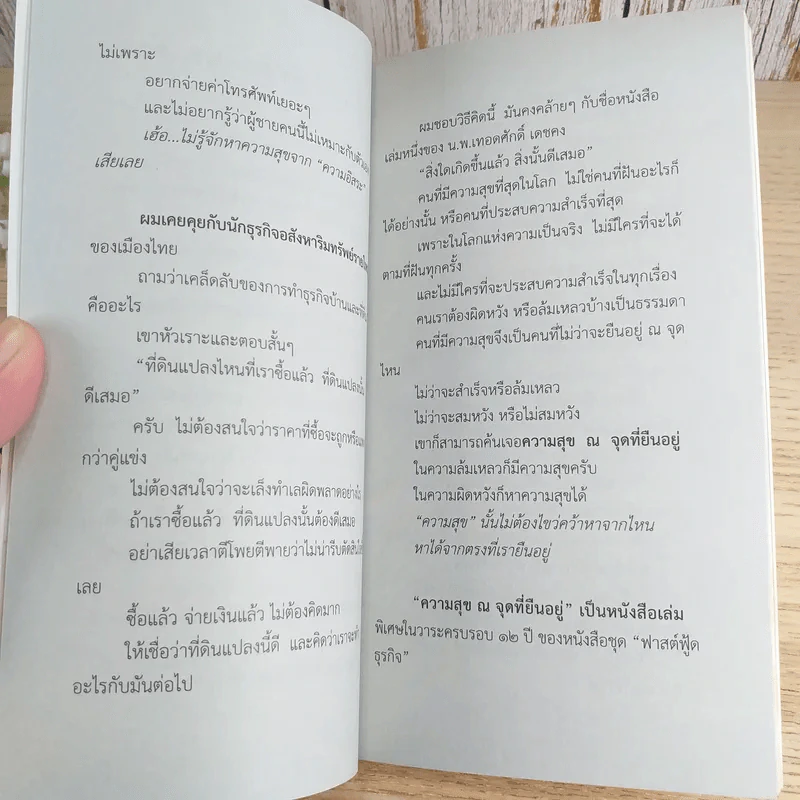 ไม่เพราะ
อยากจ่ายค่าโทรศัพท์เยอะๆ
และไม่อยากรู้ว่าผู้ชายคนนี้ไม่เหมาะกับตัวเอง
เฮ้อ...ไม่รู้จักหาความสุขจาก “ความอิสระ”
เสียเลย
ผมเคยคุยกับนักธุรกิจอสังหาริมทรัพย์ราย
ของเมืองไทย
ถามว่าเคล็ดลับของการทำธุรกิจบ้านและที่ดิน
คืออะไร
เขาหัวเราะและตอบสั้นๆ
“ที่ดินแปลงไหนที่เราซื้อแล้ว ที่ดินแปลงนั้น
ดีเสมอ”
ครับ ไม่ต้องสนใจว่าราคาที่ซื้อจะถูกหรือแพง
กว่าคู่แข่ง
ไม่ต้องสนใจว่าจะเล็งทำเลผิดพลาดอย่างไร
ถ้าเราซื้อแล้ว ที่ดินแปลงนั้นต้องดีเสมอ
อย่าเสียเวลาตีโพยตีพายว่าไม่น่ารีบตัดสินใจ
เลย
ซื้อแล้ว จ่ายเงินแล้ว ไม่ต้องคิดมาก
ให้เชื่อว่าที่ดินแปลงนี้ดี และคิดว่าเราจะทำ
อะไรกับมันต่อไป
ผมชอบวิธีคิดนี้ มันคงคล้ายๆ กับชื่อหนังสือ
เล่มหนึ่งของ น.พ.เทอดศักดิ์ เดชคง
“สิ่งใดเกิดขึ้นแล้ว สิ่งนั้นดีเสมอ”
คนที่มีความสุขที่สุดในโลก ไม่ใช่คนที่ฝันอะไรก็
ได้อย่างนั้น หรือคนที่ประสบความสำเร็จที่สุด
เพราะในโลกแห่งความเป็นจริง ไม่มีใครที่จะได้
ตามที่ฝันทุกครั้ง
และไม่มีใครที่จะประสบความสำเร็จในทุกเรื่อง
คนเราต้องผิดหวัง หรือล้มเหลวบ้างเป็นธรรมดา
คนที่มีความสุขจึงเป็นคนที่ไม่ว่าจะยืนอยู่ ณ จุด
ไหน
ไม่ว่าจะสำเร็จหรือล้มเหลว
ไม่ว่าจะสมหวัง หรือไม่สมหวัง
เขาก็สามารถค้นเจอความสุข ณ จุดที่ยืนอยู่
ในความล้มเหลวก็มีความสุขครับ
ในความผิดหวังก็หาความสุขได้
“ความสุข” นั้นไม่ต้องไขว่คว้าหาจากไหน
หาได้จากตรงที่เรายืนอยู่
“ความสุข ณ จุดที่ยืนอยู่” เป็นหนังสือเล่ม
พิเศษในวาระครบรอบ ๑๒ ปี ของหนังสือชุด “ฟาสต์ฟู้ด
ธุรกิจ”